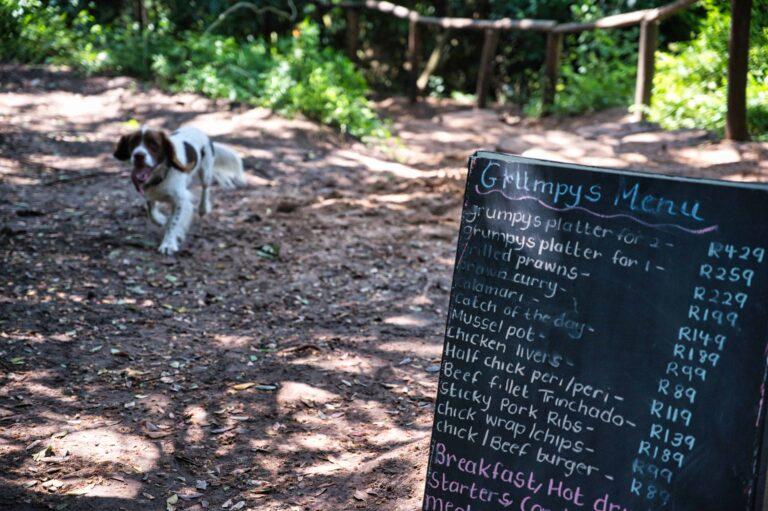 Grumpys Menu
grumpys platter for 2 - R429
grumpys platter for 1 - R259
grilled prawns - R229
prawn curry - R199
Calamari - R149
Catch of the day - R189
Mussel pot - R99
Chicken livers - R89
Half chick peri/peri - R119
Beef fillet Trinchado - R139
Sticky Pork Ribs - R189
chick wrap/chips - R99
chick/Beef burger - R89
Breakfast/Hot dr
Starters